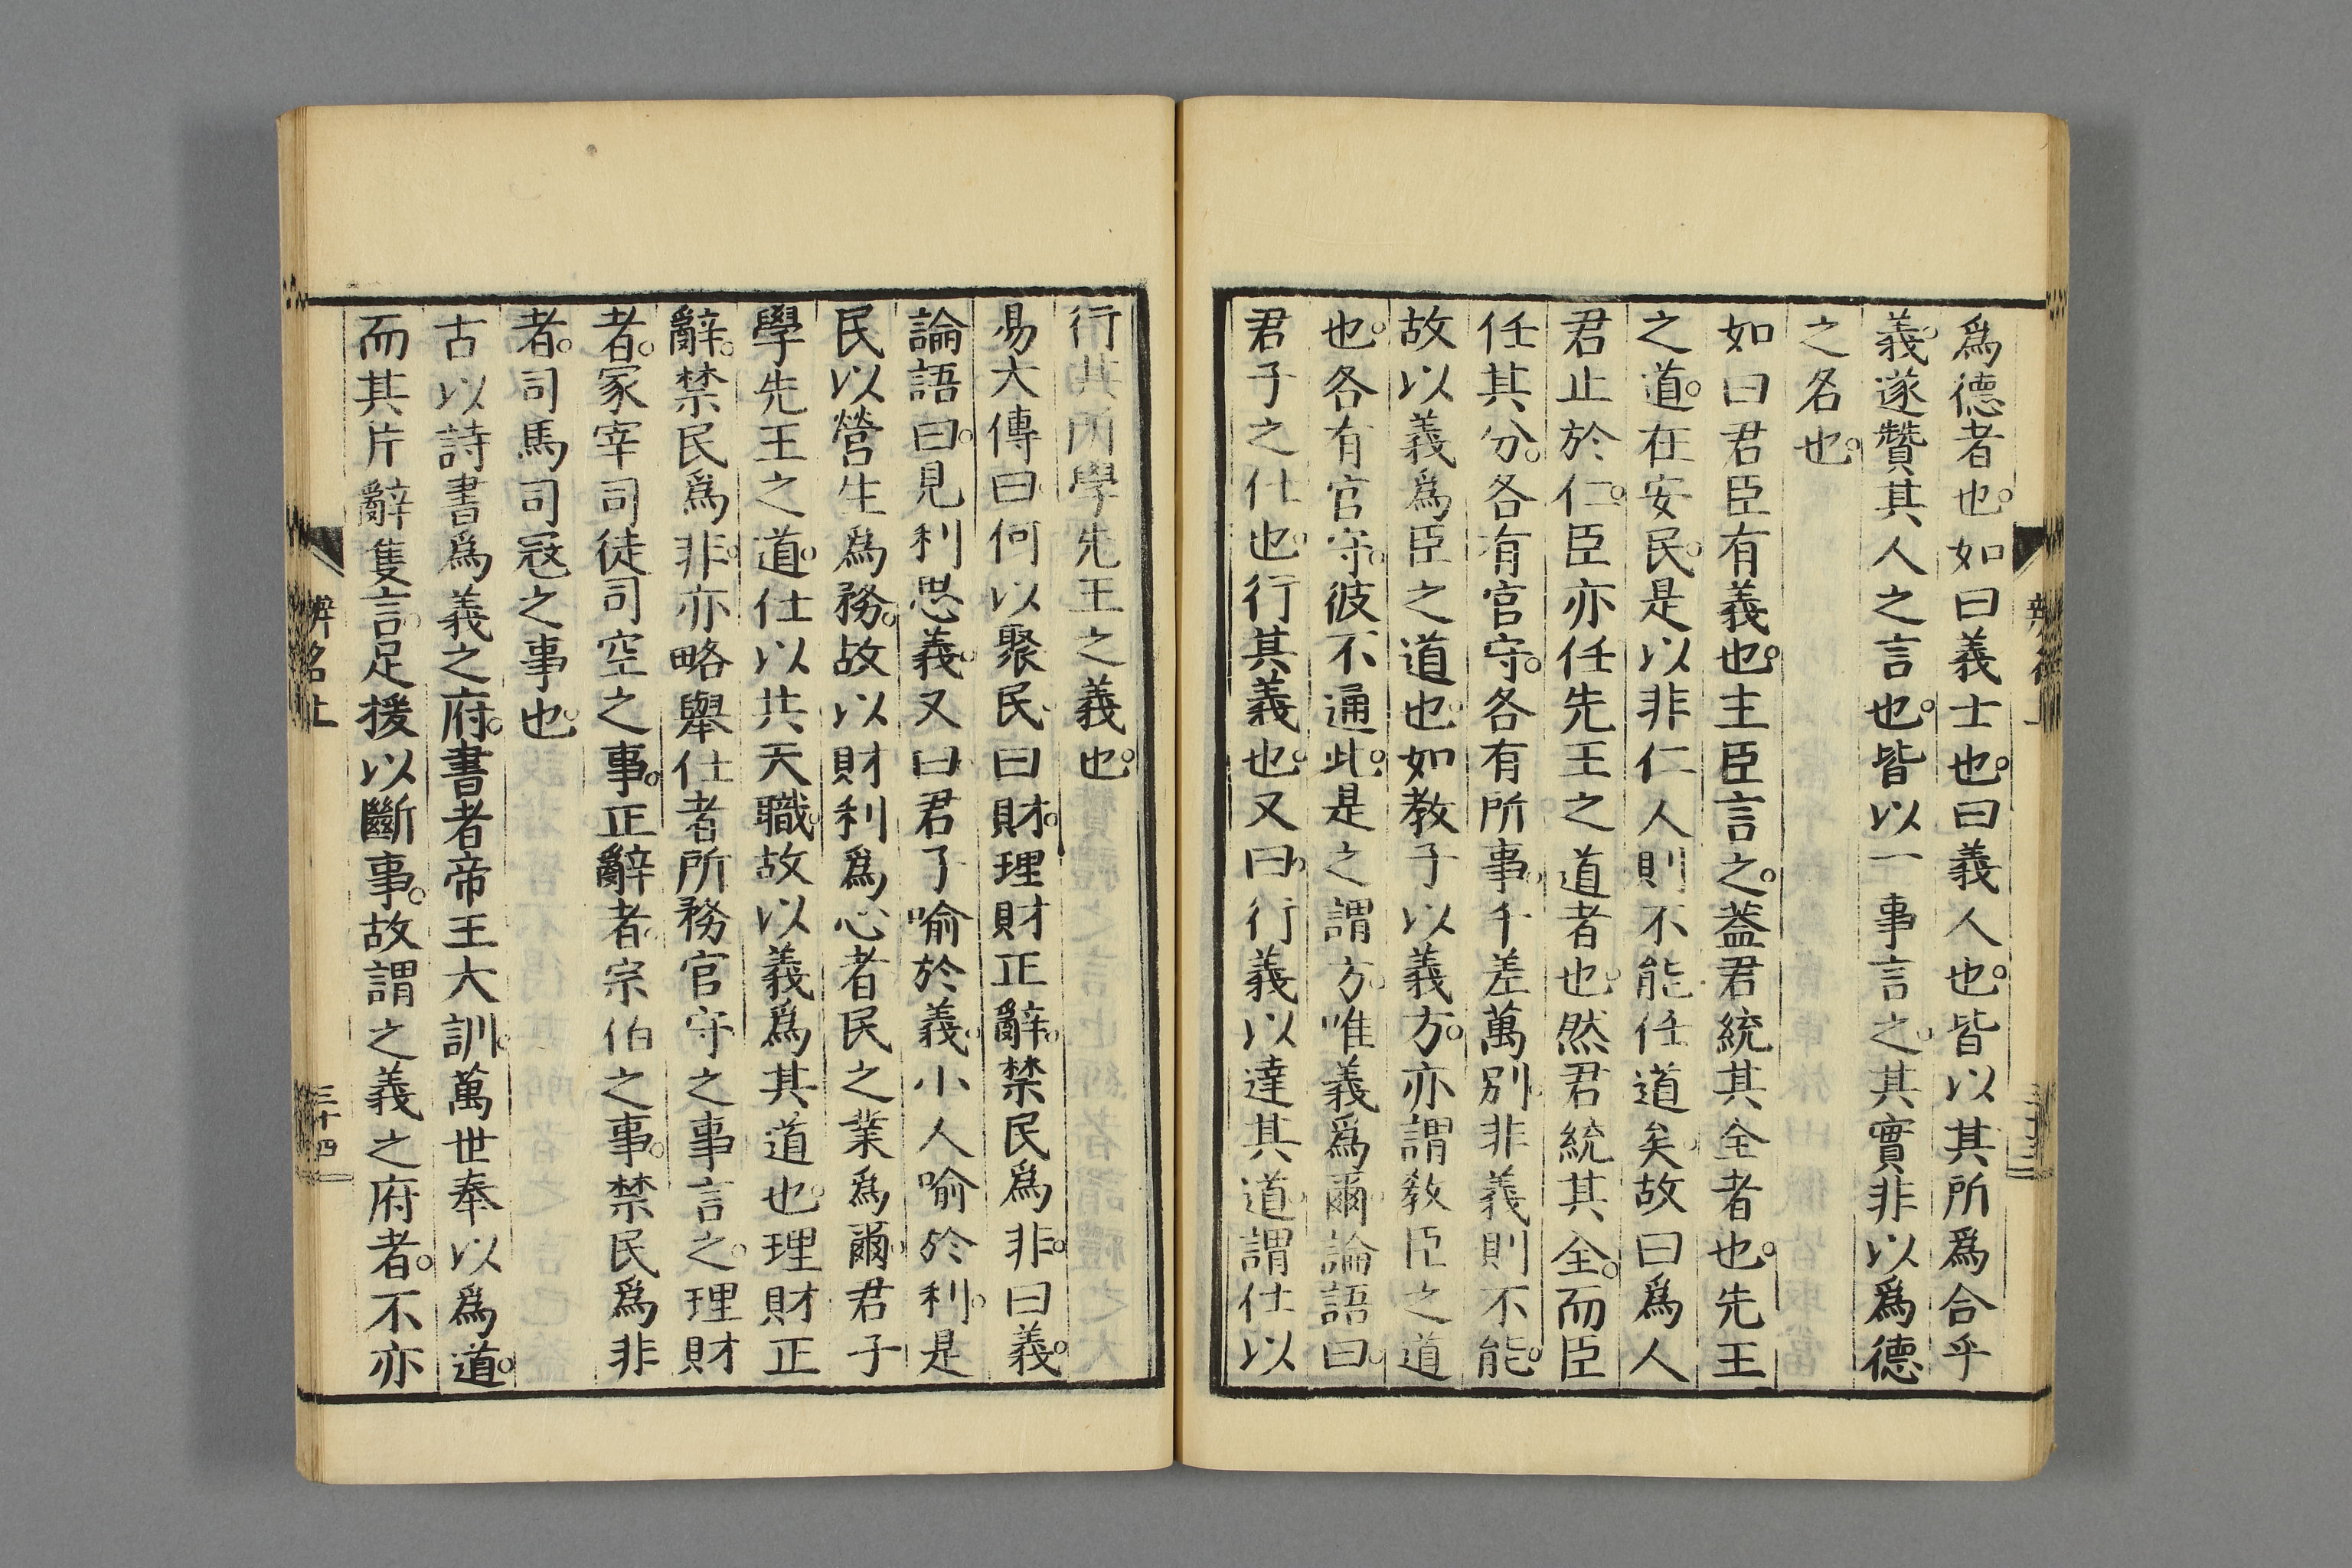 爲德者也。如曰義士也。曰義人也。皆以其所爲合乎
義。遂贊其人之言也。皆以一事言之。其實非以爲德
之名也。
如曰君臣有義也。主臣言之。蓋君統其全者也。先王
之道。在安民。是以非仁人則不能任道矣。故曰爲人
君止於仁。臣亦任先王之道者也。然君統其全。而臣
任其分。各有官守。各有所事。千差萬別。非義則不能。
故以義爲臣之道也。如教子以義方。亦謂教臣之道
也。各有官守。彼不通此。是之謂方。唯義爲爾。論語曰。
君子之仕也。行其義也。又曰。行義以達其道。謂仕以
行其所學先王之義也。
易大傳曰。何以聚民。曰財。理財正辭。禁民爲非。曰義。
論語曰。見利思義。又曰。君子喻於義。小人喻於利。是
民以營生爲務。故以財利爲心者。民之業爲爾。君子
學先王之道。仕以共天職。故以義爲其道也。理財正
辭。禁民爲非。亦略舉仕者所務官守之事言之。理財
者。冢宰司徒司空之事。正辭者。宗伯之事。禁民爲非
者。司馬司寇之事也。
古以詩書爲義之府。書者帝王大訓。萬世奉以爲道。
而其片辭隻言。足援以斷事。故謂之義之府者。不亦
辨名上
三十四